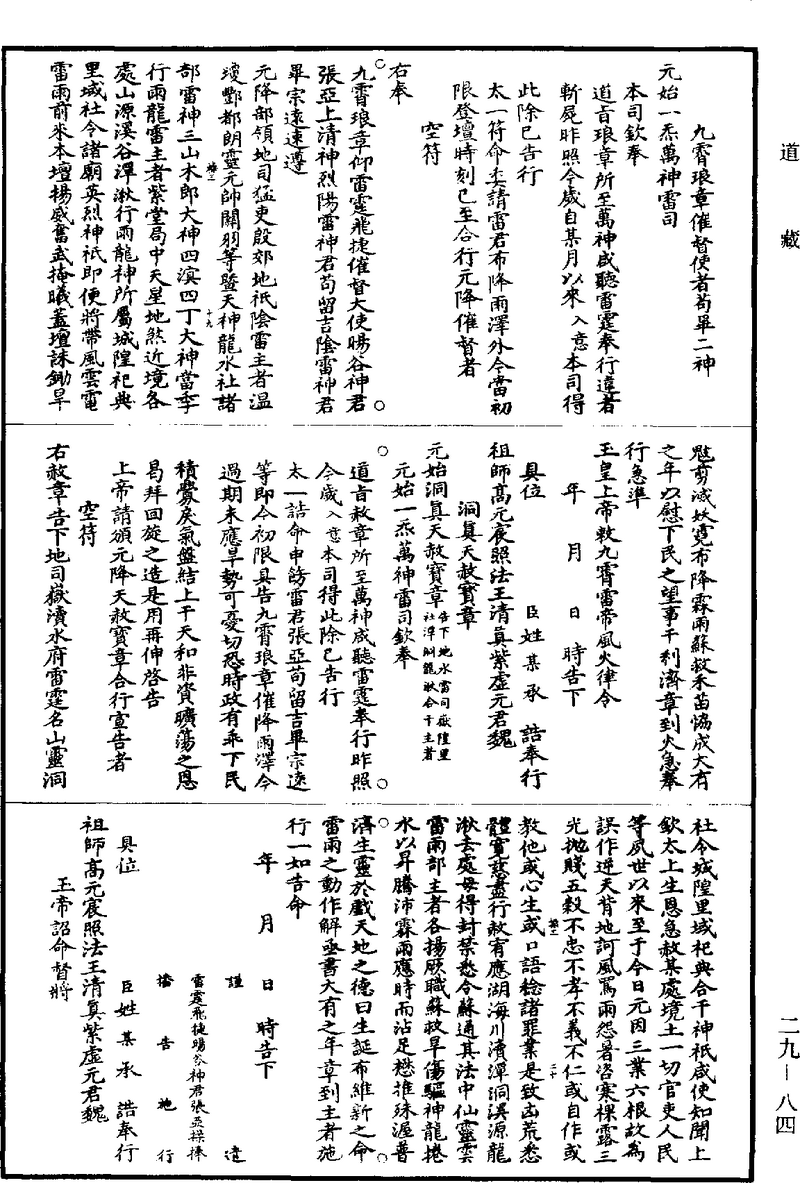 道藏
九霄琅章催督使者苟畢二神
元始一炁萬神雷司
本司欽奉
道旨琅章所至萬神咸聽雷霆奉行違者
斬屍昨照今歲自某月以來入意本司得
此除已告行
太一符命奏請雷君布降雨澤外今當初
限登壇時刻已至合行元降催督者
空符
右奉
九霄琅章仰雷霆飛捷催督大使暘谷神君
張亞上清神烈陽雷神君苟留吉陰雷神君
畢宗遠速遵
元降部領地司猛吏殷郊地祇陰雷主者溫
瓊酆都朗靈元帥關羽等暨天神龍水社諸
部雷神三山木郎大神四溟四丁大神當季
行雨龍雷主者紫堂局中天星地煞近境各
處山源溪谷潭湫行雨龍神所屬城隍祀典
里域社令諸廟英烈神祇即便將帶風雲電
雷雨前來本壇揚威奮武掩曦蓋壇誅鋤旱
魃剪滅妖霓布降霖雨蘇救禾苗恊成大有
之年以慰下民之望事干利濟章到火急奉
行急準
玉皇上帝敕九霄雷帝風火律令
年月日時告下
具位臣姓某承誥奉行
祖師高元宸照法王清眞紫虛元君魏
洞眞天赦寶章
元始洞眞天赦寶章告下地水雷司嶽隍里社潭洞龍湫合干主者
元始一炁萬神雷司欽奉
道旨赦章所至萬神咸聽雷霆奉行昨照
今歲入意本司得此除已告行
太一誥命申餙雷君張亞苟留吉畢宗遠
等即令初限具告九霄琅章催降雨澤今
過期未應旱勢可憂切恐時政有乖下民
積釁戾氣盤結上干天和非資曠蕩之恩
曷拜回旋之造是用再伸啓告
上帝請頒元降天赦寶章合行宣告者
空符
右赦章告下地司嶽瀆水府雷霆名山靈洞
社令城隍里域祀典合干神祇咸使知聞上
欽太上生恩急赦某處境土一切官吏人民
等夙世以來至于今日元因三業六根故爲
誤作逆天背地訶風罵雨怨暑咨寒裸露三
光拋賤五穀不忠不孝不義不仁或自作或
教他或心生或口語稔諸罪業是致凶荒悉
體寬慈盡行赦宥應湖海川瀆潭洞溪源龍
湫去處毋得封禁悉令蘇通其法中仙靈雲
雷雨部主者各揚厥職蘇救旱傷驅神龍捲
水以昇騰沛霖雨應時而沾足懋推殊渥普
濟生靈於戲天地之德曰生誕布維新之命
雷雨之動作解亟書大有之年章到主者施
行一如告命
年月日時告下
謹遣
雷霆飛捷暘谷神君張亞操捧
播告施行
具位臣姓某承誥奉行
祖師高元宸照法王清眞紫虛元君魏
玉帝詔命督將
二九—八四